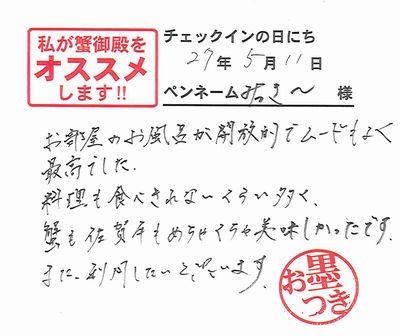 私が蟹御殿を
オススメ
します!!
チェックインの日にち
27年5月11日
ペンネーム みさき〜 様
お部屋のお風呂が開放的でムードもよく
最高でした。
料理も食べきれないくらい多く、
蟹も佐賀牛もめちゃくちゃ美味しかったです。
また、利用したいとございます。
お墨
つき